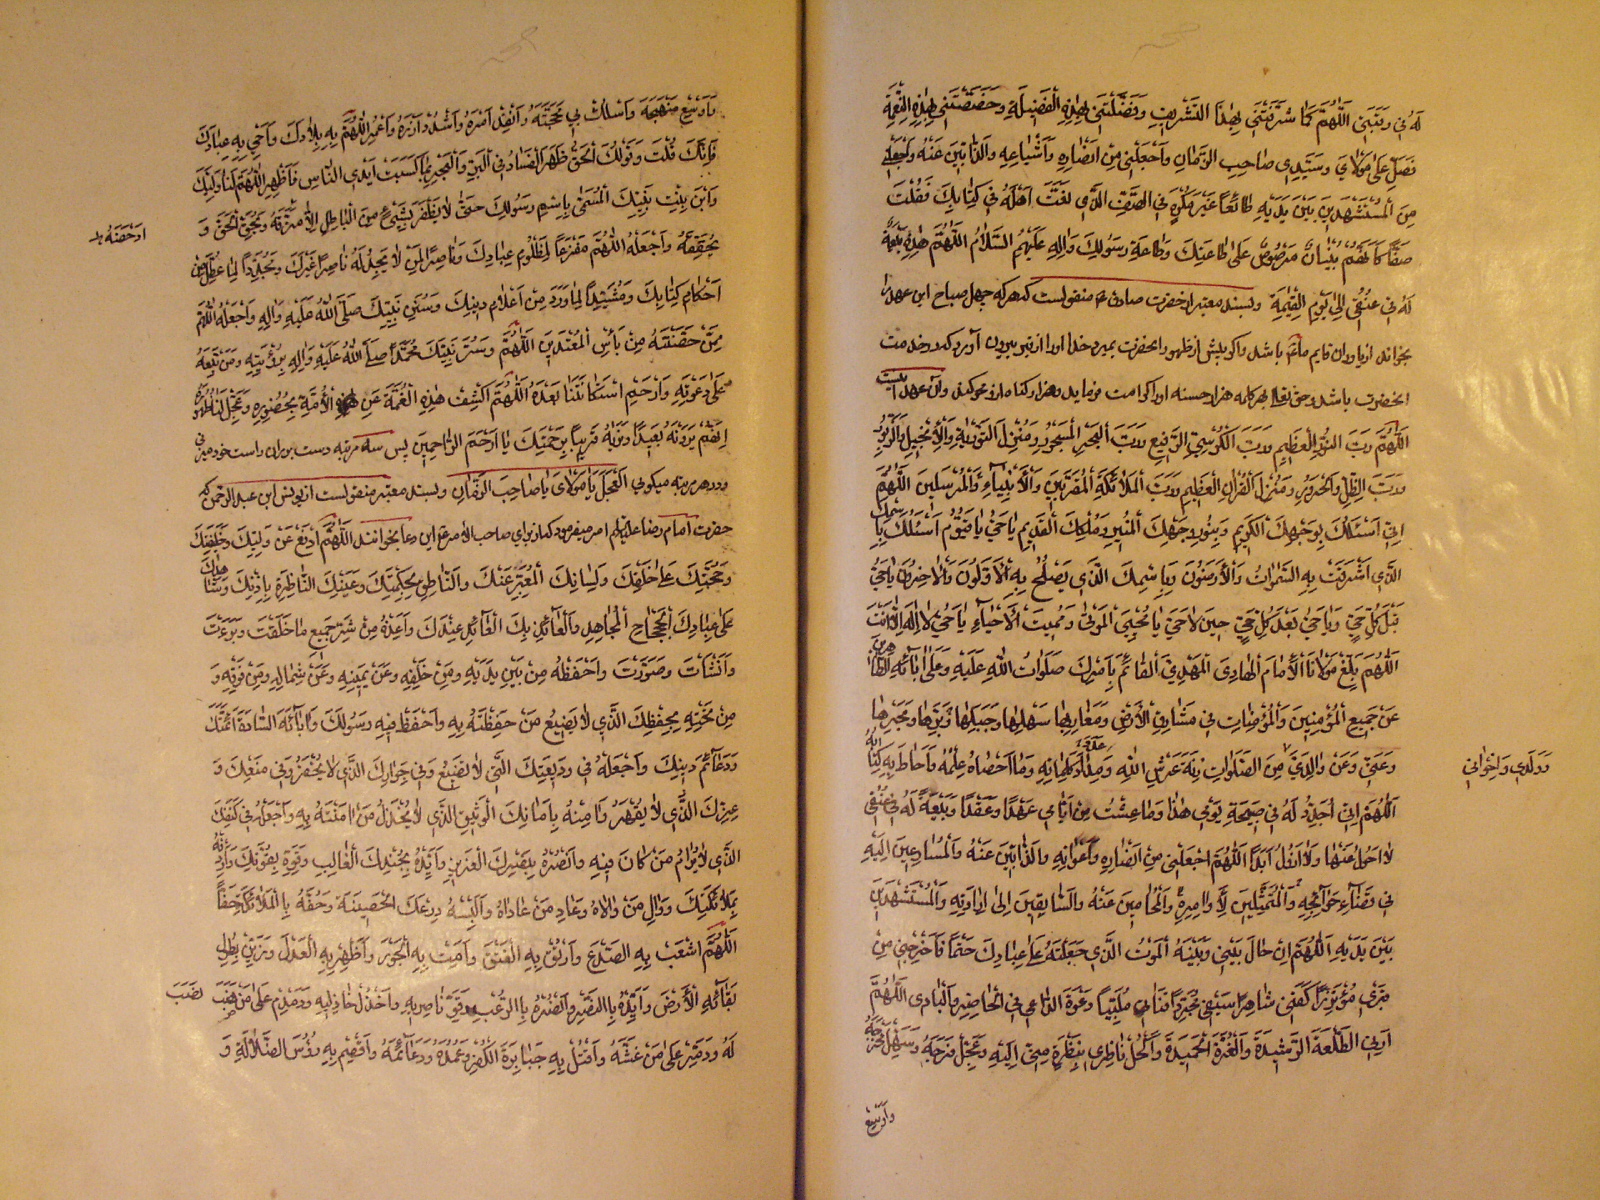 لَهُ فِي رَقَبَتِي اَللّٰهُمَّ كَمٰا شَرَّفْتَنِي بِهٰذَا التَّشْرِيفِ وَفَضَّلْتَنِي بِهٰذِهِ الْفَضِيلَةِ وَخَصَصْتَنِي بِهٰذِهِ النِّعْمَةِ
فَصَلِّ عَلىٰ مَوْلاٰيَ وَسَيِّدِي صٰاحِبِ الزَّمٰانِ وَاجْعَلْنِي مِنْ اَنْصٰارِهِ وَاَشْيٰاعِهِ وَالذّٰابِّينَ عَنْهُ وَاجْعَلْنِي
مِنَ الْمُسْتَشْهَدِينَ بَيْنَ يَدَيْهِ طٰائِعًا غَيْرَ مُكْرَهٍ فِي الصَّفِّ الَّذِي نَعَتَّ اَهْلَهُ فِي كِتٰابِكَ فَقُلْتَ
صَفًّا كَاَنَّهُمْ بُنْيٰانٌ مَرْصُوصٌ عَلىٰ طٰاعَتِكَ وَطٰاعَةِ رَسُولِكَ وَاٰلِهِ عَلَيْهِمُ السَّلاٰمُ اَللّٰهُمَّ هٰذِهِ بَيْعَةٌ
لَهُ فِي عُنُقِي اِلىٰ يَوْمِ الْقِيٰمَةِ وبسند معتبر از حضرت صادق ع منقولست كه هر كه چهل صباح اين عهد را
بخواند از ياوران قايم ما باشد واكر پيش از ظهور انحضرت بميرد خدا اورا از قبر بيرون آورد كه در خدمت
انحضرت باشد وحق تعالى بهر كلمه هزار حسنه اورا كرامت فرمايد وهزار كناه ازو محو كند وآن عهد اينست
اَللّٰهُمَّ رَبَّ النُّورِ الْعَظِيمِ وَرَبَّ الْكُرْسِيِّ الرَّفِيعِ وَرَبَّ الْبَحْرِ الْمَسْجُورِ وَمُنْزِلَ التَّوْرٰيةِ وَالْاِنْجِيلِ وَالزَّبُورِ
وَرَبَّ الظِّلِّ وَالْحَرُورِ وَمُنْزِلَ الْقُرْاٰنِ الْعَظِيمِ وَرَبَّ الْمَلاٰئِكَةِ الْمُقَرَّبِينَ وَالْاَنْبِيٰاءِ وَالْمُرْسَلِينَ اَللّٰهُمَّ
اِنِّي اَسْئَلُكَ بِوَجْهِكَ الْكَرِيمِ وَبِنُورِ وَجْهِكَ الْمُنِيرِ وَمُلْكِكَ الْقَدِيمِ يٰا حَيُّ يٰا قَيُّومُ اَسْئَلُكَ بِاسْمِكَ
الَّذِي اَشْرَقَتْ بِهِ السَّمٰوٰاتُ وَالْاَرَضُونَ وَبِاسْمِكَ الَّذِي يَصْلَحُ بِهِ الْاَوَّلُونَ وَالْاٰخِرُونَ يٰا حَيُّ
قَبْلَ كُلِّ حَيٍّ وَيٰا حَيُّ بَعْدَ كُلِّ حَيٍّ حِينَ لاٰ حَيَّ يٰا مُحْيِيَ الْمَوْتىٰ وَمُمِيتَ الْاَحْيٰاءِ يٰا حَيُّ لاٰ اِلٰهَ اِلّٰا اَنْتَ
اَللّٰهُمَّ بَلِّغْ مَوْلاٰنَا الْاِمٰامَ الْهٰادِيَ الْمَهْدِيَّ الْقٰائِمَ بِاَمْرِكَ صَلَوٰاتُ اللّٰهِ عَلَيْهِ وَعَلىٰ اٰبٰائِهِ الطّٰاهِرِينَ
عَنْ جَمِيعِ الْمُؤْمِنِينَ وَالْمُؤْمِنٰاتِ فِي مَشٰارِقِ الْاَرْضِ وَمَغٰارِبِهٰا سَهْلِهٰا وَجَبَلِهٰا وَبَرِّهٰا وَبَحْرِهٰا
وَعَنِّي وَعَنْ وٰالِدَيَّ مِنَ الصَّلَوٰاتِ زِنَةَ عَرْشِ اللّٰهِ وَمِدٰادَ كَلِمٰاتِهِ وَمٰا اَحْصٰاهُ عِلْمُهُ وَاَحٰاطَ بِهِ كِتٰابُهُ
وَوُلْدِي وَاِخْوٰانِي
اَللّٰهُمَّ اِنِّي اُجَدِّدُ لَهُ فِي صَبِيحَةِ يَوْمِي هٰذٰا وَمٰا عِشْتُ مِنْ اَيّٰامِي عَهْدًا وَعَقْدًا وَبَيْعَةً لَهُ فِي عُنُقِي
لاٰ اَحُولُ عَنْهٰا وَلاٰ اَزُولُ اَبَدًا اَللّٰهُمَّ اجْعَلْنِي مِنْ اَنْصٰارِهِ وَاَعْوٰانِهِ وَالذّٰابِّينَ عَنْهُ وَالْمُسٰارِعِينَ اِلَيْهِ
فِي قَضٰاءِ حَوٰائِجِهِ وَالْمُمْتَثِلِينَ لِاَوٰامِرِهِ وَالْمُحٰامِينَ عَنْهُ وَالسّٰابِقِينَ اِلىٰ اِرٰادَتِهِ وَالْمُسْتَشْهَدِينَ
بَيْنَ يَدَيْهِ اَللّٰهُمَّ اِنْ حٰالَ بَيْنِي وَبَيْنَهُ الْمَوْتُ الَّذِي جَعَلْتَهُ عَلىٰ عِبٰادِكَ حَتْمًا فَاَخْرِجْنِي مِنْ
قَبْرِي مُؤْتَزِرًا كَفَنِي شٰاهِرًا سَيْفِي مُجَرِّدًا قَنٰاتِي مُلَبِّيًا دَعْوَةَ الدّٰاعِي فِي الْحٰاضِرِ وَالْبٰادِي اَللّٰهُمَّ
اَرِنِي الطَّلْعَةَ الرَّشِيدَةَ وَالْغُرَّةَ الْحَمِيدَةَ وَاكْحُلْ نٰاظِرِي بِنَظْرَةٍ مِنِّي اِلَيْهِ وَعَجِّلْ فَرَجَهُ وَسَهِّلْ مَخْرَجَهُ
وَاَوْسِعْ
وَاَوْسِعْ مَنْهَجَهُ وَاسْلُكْ بِي مَحَجَّتَهُ وَاَنْفِذْ اَمْرَهُ وَاشْدُدْ اَزْرَهُ وَاعْمُرِ اللّٰهُمَّ بِهِ بِلاٰدَكَ وَاَحْيِ بِهِ عِبٰادَكَ
فَاِنَّكَ قُلْتَ وَقَوْلُكَ الْحَقُّ ظَهَرَ الْفَسٰادُ فِي الْبَرِّ وَالْبَحْرِ بِمٰا كَسَبَتْ اَيْدِي النّٰاسِ فَاَظْهِرِ اللّٰهُمَّ لَنٰا وَلِيَّكَ
وَابْنَ بِنْتِ نَبِيِّكَ الْمُسَمّٰى بِاسْمِ رَسُولِكَ حَتّٰى لاٰ يَظْفَرَ بِشَيْءٍ مِنَ الْبٰاطِلِ اِلّٰا مَزَّقَهُ وَيُحِقَّ الْحَقَّ وَ
يُحَقِّقَهُ وَاجْعَلْهُ اللّٰهُمَّ مَفْزَعًا لِمَظْلُومِ عِبٰادِكَ وَنٰاصِرًا لِمَنْ لاٰ يَجِدُ لَهُ نٰاصِرًا غَيْرَكَ وَمُجَدِّدًا لِمٰا عُطِّلَ مِنْ
اَحْكٰامِ كِتٰابِكَ وَمُشَيِّدًا لِمٰا وَرَدَ مِنْ اَعْلاٰمِ دِينِكَ وَسُنَنِ نَبِيِّكَ صَلَّى اللّٰهُ عَلَيْهِ وَاٰلِهِ وَاجْعَلْهُ اللّٰهُمَّ
مِمَّنْ حَصَّنْتَهُ مِنْ بَأْسِ الْمُعْتَدِينَ اَللّٰهُمَّ وَسُرَّ نَبِيَّكَ مُحَمَّدًا صَلَّى اللّٰهُ عَلَيْهِ وَاٰلِهِ بِرُؤْيَتِهِ وَمَنْ تَبِعَهُ
عَلىٰ دَعْوَتِهِ وَارْحَمِ اسْتِكٰانَتَنٰا بَعْدَهُ اَللّٰهُمَّ اكْشِفْ هٰذِهِ الْغُمَّةَ عَنِ الْاُمَّةِ بِحُضُورِهِ وَعَجِّلْ لَنٰا ظُهُورَهُ
اِنَّهُمْ يَرَوْنَهُ بَعِيدًا وَنَرٰيهُ قَرِيبًا بِرَحْمَتِكَ يٰا اَرْحَمَ الرّٰاحِمِينَ پس سه مرتبه دست بر ران راست خود ميزنى
ودر هر مرتبه ميكويى اَلْعَجَلَ يٰا مَوْلاٰيَ يٰا صٰاحِبَ الزَّمٰانِ وبسند معتبر منقولست از يونس ابن عبد الرحمن كه
حضرت امام رضا عليه السلام امر ميفرمود كه از براى صاحب الامر ع اين دعا بخوانند اَللّٰهُمَّ ادْفَعْ عَنْ وَلِيِّكَ وَخَلِيفَتِكَ
وَحُجَّتِكَ عَلىٰ خَلْقِكَ وَلِسٰانِكَ الْمُعَبِّرِ عَنْكَ وَالنّٰاطِقِ بِحِكْمَتِكَ وَعَيْنِكَ النّٰاظِرَةِ بِاِذْنِكَ وَشٰاهِدِكَ
عَلىٰ عِبٰادِكَ الْجَحْجٰاحِ الْمُجٰاهِدِ وَالْعٰائِذِ بِكَ الْعٰائِذِ عِنْدَكَ وَاَعِذْهُ مِنْ شَرِّ جَمِيعِ مٰا خَلَقْتَ وَبَرَءْتَ
وَاَنْشَأْتَ وَصَوَّرْتَ وَاحْفَظْهُ مِنْ بَيْنِ يَدَيْهِ وَمِنْ خَلْفِهِ وَعَنْ يَمِينِهِ وَعَنْ شِمٰالِهِ وَمِنْ فَوْقِهِ وَ
مِنْ تَحْتِهِ بِحِفْظِكَ الَّذِي لاٰ يَضِيعُ مَنْ حَفِظْتَهُ بِهِ وَاحْفَظْ فِيهِ رَسُولَكَ وَاٰبٰائَهُ السّٰادَةَ اَئِمَّتَكَ
وَدَعٰائِمَ دِينِكَ وَاجْعَلْهُ فِي وَدِيعَتِكَ الَّتِي لاٰ تَضِيعُ وَفِي جِوٰارِكَ الَّذِي لاٰ يُخْفَرُ وَفِي مَنْعِكَ وَ
عِزِّكَ الَّذِي لاٰ يُقْهَرُ وَاٰمِنْهُ بِاَمٰانِكَ الْوَثِيقِ الَّذِي لاٰ يُخْذَلُ مَنْ اٰمَنْتَهُ بِهِ وَاجْعَلْهُ فِي كَنَفِكَ
الَّذِي لاٰ يُرٰامُ مَنْ كٰانَ فِيهِ وَانْصُرْهُ بِنَصْرِكَ الْعَزِيزِ وَاَيِّدْهُ بِجُنْدِكَ الْغٰالِبِ وَقَوِّهِ بِقُوَّتِكَ وَاَرْدِفْهُ
بِمَلاٰئِكَتِكَ وَوٰالِ مَنْ وٰالاٰهُ وَعٰادِ مَنْ عٰادٰاهُ وَاَلْبِسْهُ دِرْعَكَ الْحَصِينَةَ وَحُفَّهُ بِالْمَلاٰئِكَةِ حَفًّا
اَللّٰهُمَّ اشْعَبْ بِهِ الصَّدْعَ وَارْتُقْ بِهِ الْفَتْقَ وَاَمِتْ بِهِ الْجَوْرَ وَاَظْهِرْ بِهِ الْعَدْلَ وَزَيِّنْ بِطُولِ
بَقٰائِهِ الْاَرْضَ وَاَيِّدْهُ بِالنَّصْرِ وَانْصُرْهُ بِالرُّعْبِ وَقَوِّ نٰاصِرِيهِ وَاخْذُلْ خٰاذِلِيهِ وَدَمْدِمْ عَلىٰ مَنْ نَصَبَ
نَصَبَ
لَهُ وَدَمِّرْ عَلىٰ مَنْ غَشَّهُ وَاقْتُلْ بِهِ جَبٰابِرَةَ الْكُفْرِ وَعُمُدَهُ وَدَعٰائِمَهُ وَاقْصِمْ بِهِ رُؤُسَ الضَّلاٰلَةِ وَ